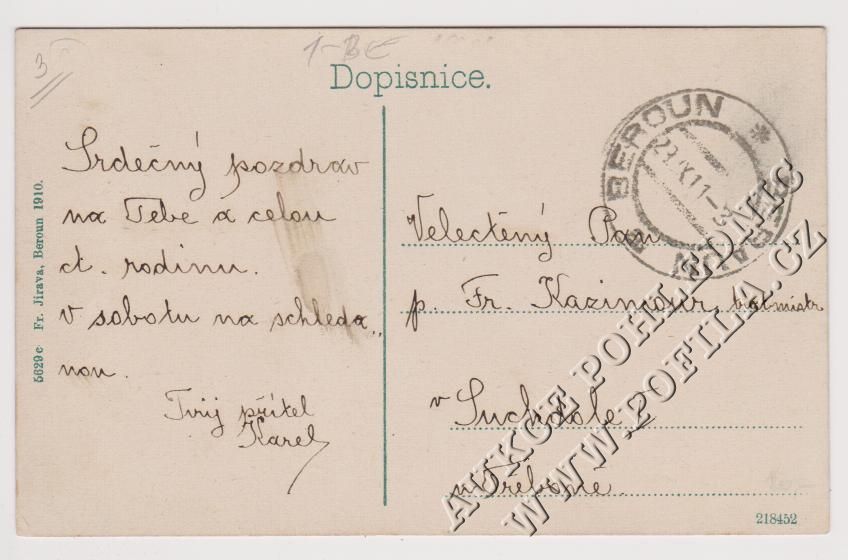 3
1-BE
Dopisnice.
BEROUN * BERAUN
Srdečný pozdrav
na Tebe a celou
ct. rodinu.
V sobotu na schleda„
nou.
Tvůj přítel
Karel
Velectěný Pan
p. Fr. Kazimour,
v Suchdole
u Třeboně.
5629c Fr. Jirava, Beroun 1910.
218452
AUKCE POHLEDNIC
WWW.POFILA.CZ